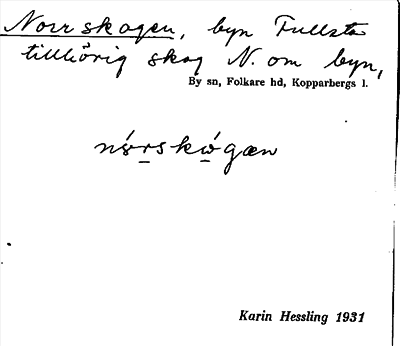 Norrskogen, byn Fullsta
tillhörig skog N. om byn,
By sn, Folkare hd, Kopparbergs l.
nórskógæn
Karin Hessling 1931